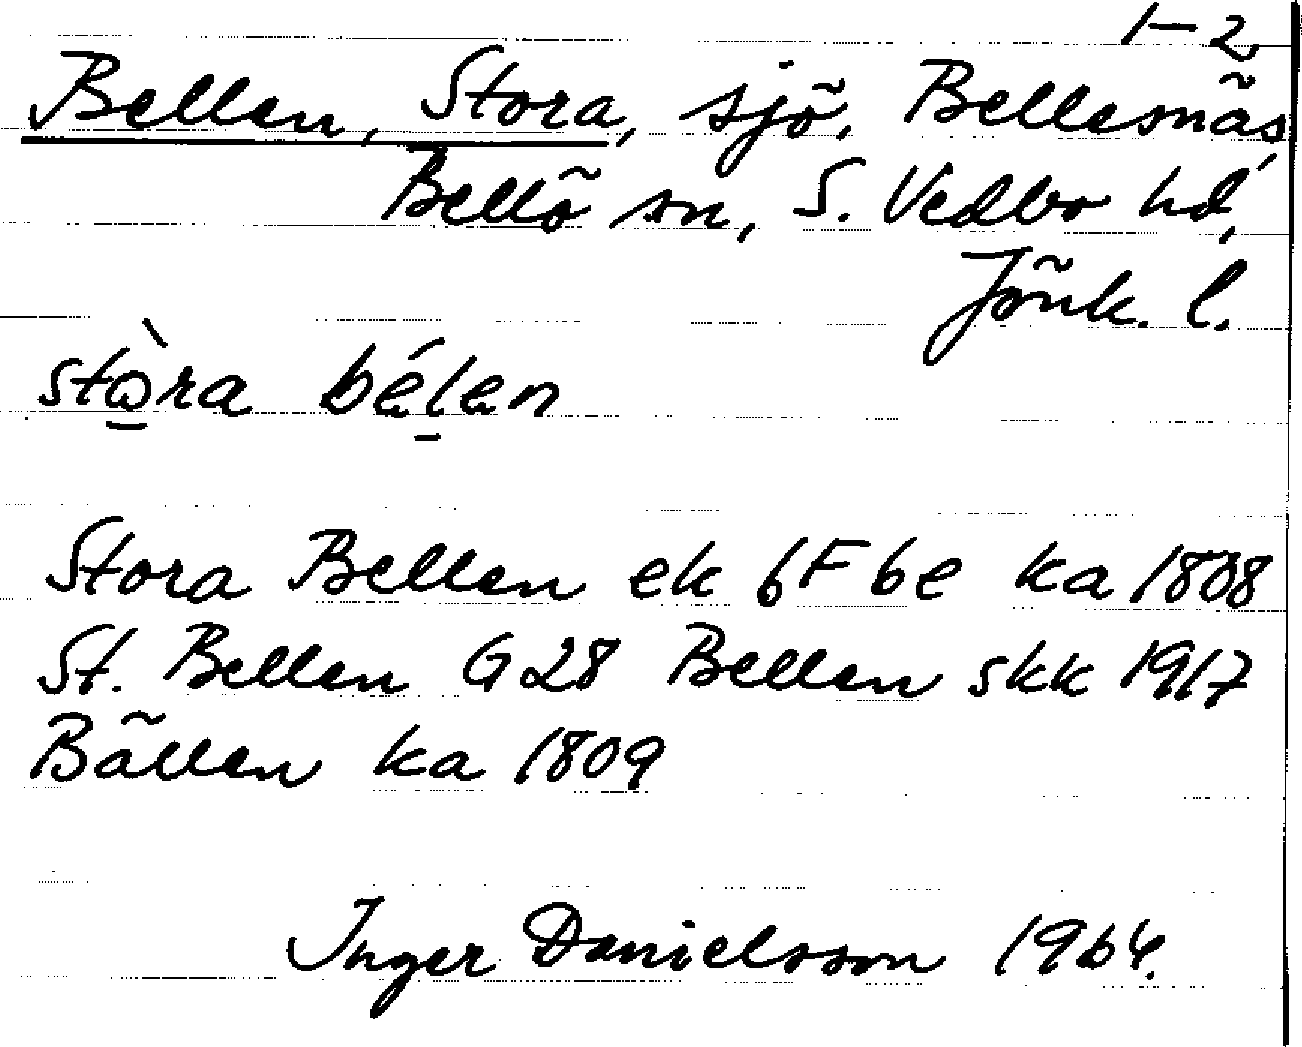 1-2
Bellen, Stora, sjö, Bellesnäs,
Bellö sn, S. Vedbo hd,
Jönk. l.
stò̱ra bé̱len
Stora Bellen ek 6F6e ka 1808
St. Bellen G28 Bellen skk 1917
Bällen ka 1809
Inger Danielsson 1964.